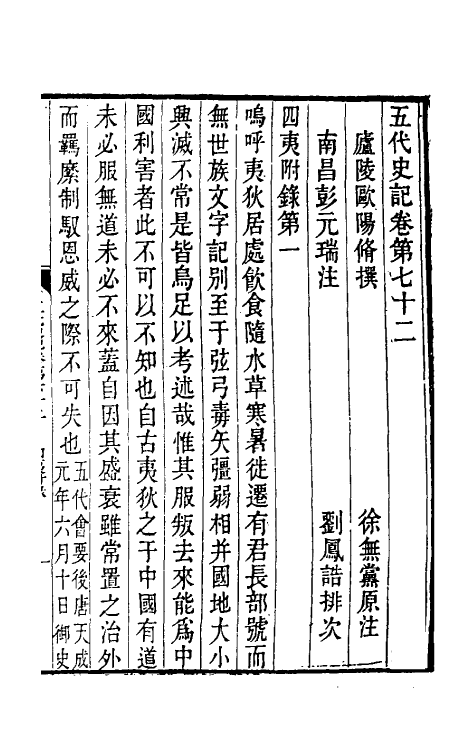 五代史記卷第七十二
廬陵歐陽脩撰　徐無黨原注
南昌彭元瑞注　劉鳳誥排次
四夷附錄第一
嗚呼夷狄居處飲食隨水草寒暑徙遷有君長部號而
無世族文字記別至于弦弓毒矢彊弱相并國地大小
興滅不常是皆烏足以考述哉惟其服叛去來能爲中
國利害者此不可以不知也自古夷狄之于中國有道
未必服無道未必不來蓋自因其盛衰雖常置之治外
而羈縻制馭恩威之際不可失也
五代會要後唐天成
元年六月十日御史